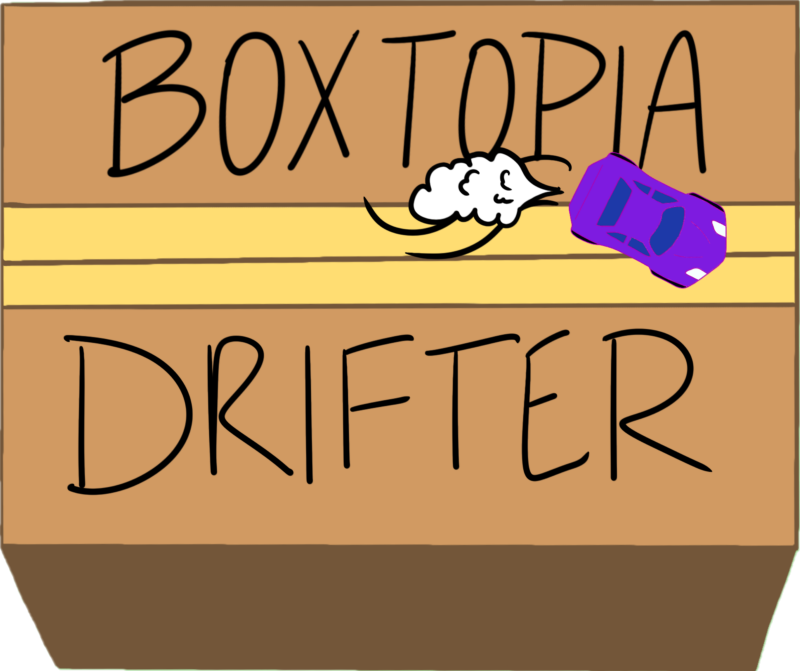 BOXTOPIA
DRIFTER